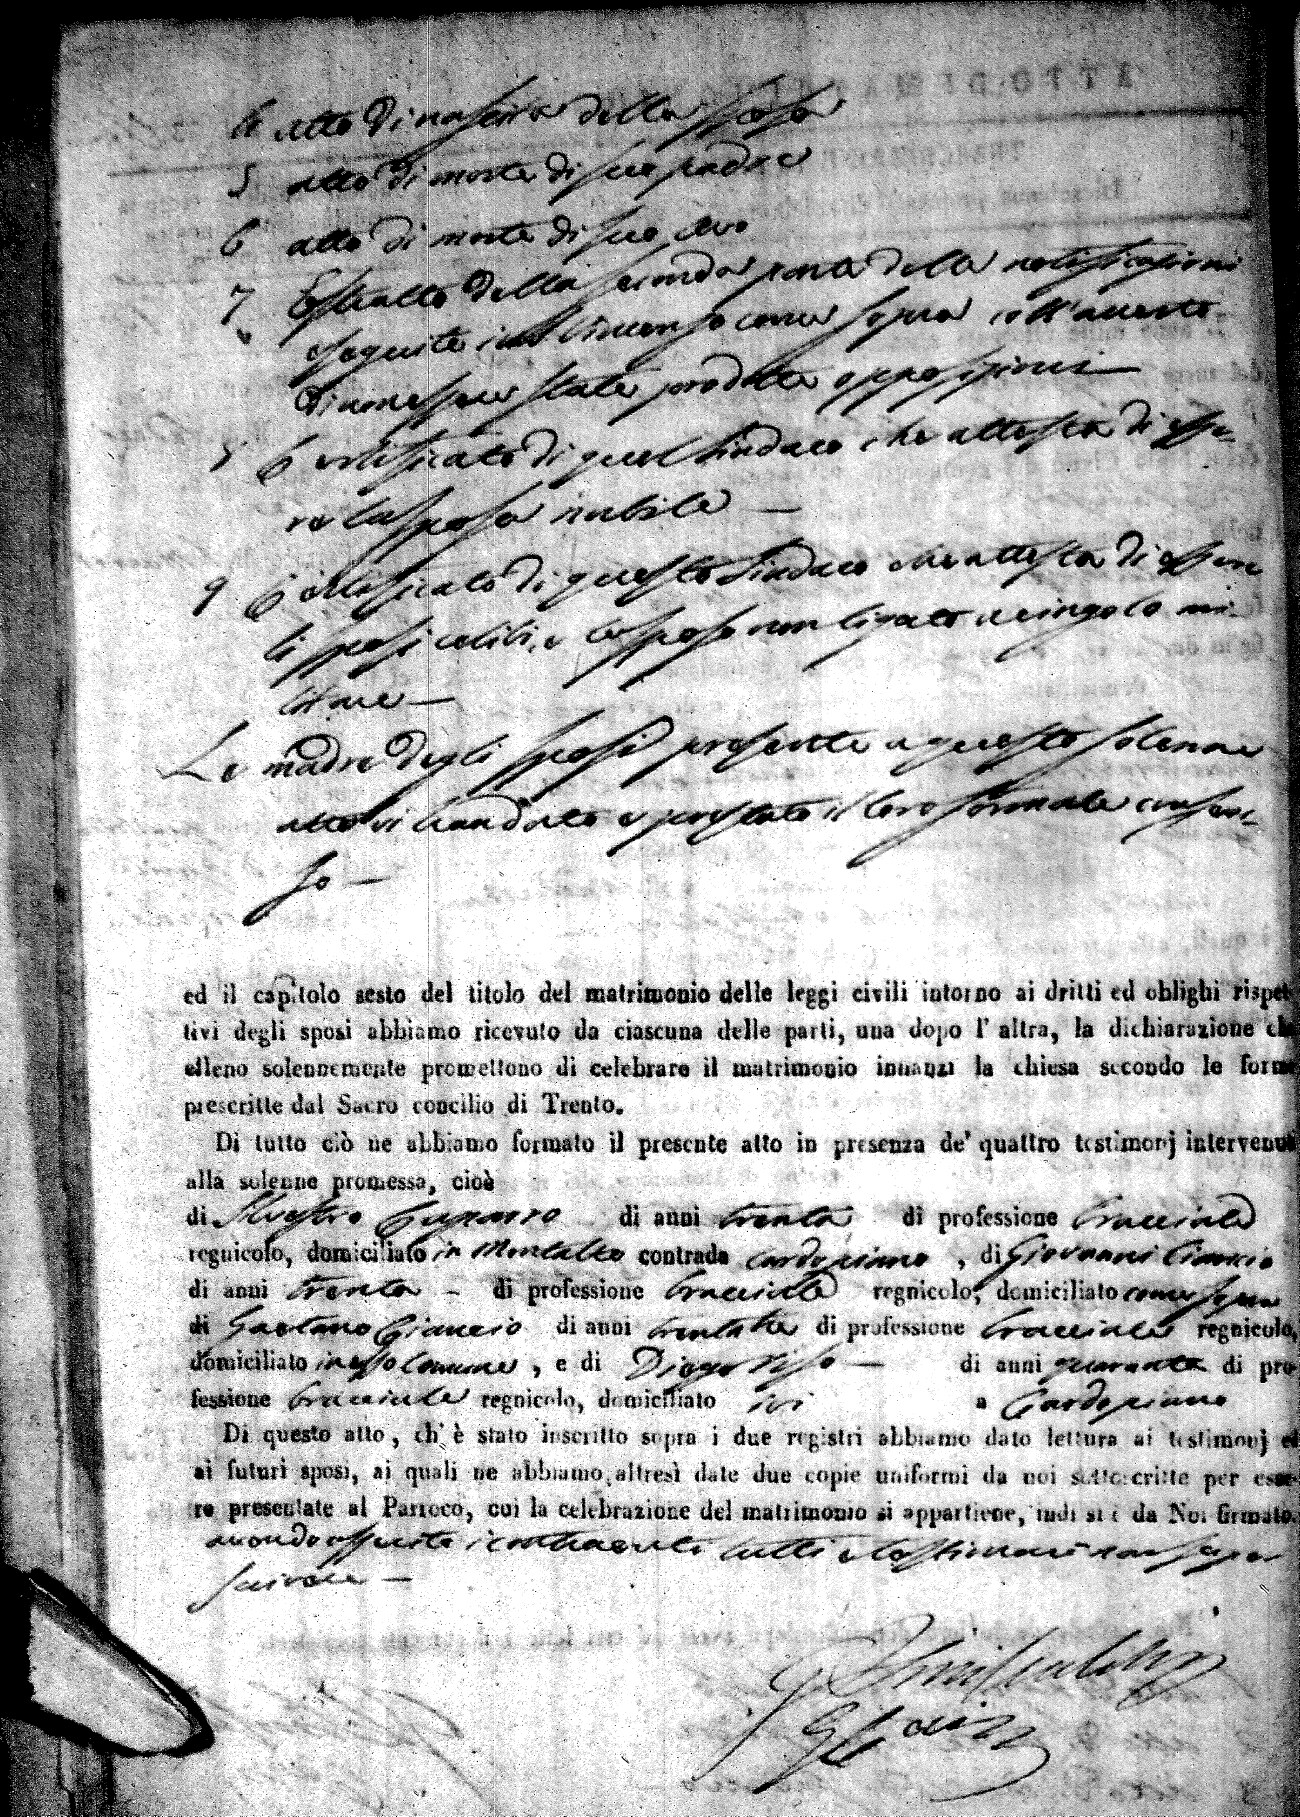 4 atto di nascita della sposa
5 atto di morte di suo padre
6 atto di morte di suo avo
7 Estratto della seconda parte delle notificazioni
eseguite in come sopra coll'
di non essere state prodotte opposizioni —
Certificato di quel Sindaco che attesta di esse-
re la sposa nubile —
9 Certificato di questo Sindaco che attesta di essere
li sposi celibi, e lo sposo non ligato a cingolo mi-
litare —
Le madri degli sposi presenti a questo solenne
atto vi han dato e prestato il loro formale consen-
so —
ed il capitolo sesto del titolo del matrimonio delle leggi civili intorno ai dritti ed oblighi rispet
tivi degli sposi abbiamo ricevuto da ciascuna delle parti, una dopo l' altra, la dichiarazione che
elleno solennemente promettono di celebrare il matrimonio innanzi la chiesa secondo le forme
prescritte dal Sacro concilio di Trento.
Di tutto ciò ne abbiamo formato il presente atto in presenza de' quattro testimonj intervenuti
alla solenne promessa, cioè
di Silvestro di anni trenta di professione bracciale
regnicolo, domiciliato in Montalto contrada , di Giovanni Ciancio
di anni trenta – di professione bracciale regnicolo, domiciliato come sopra
di Gaetano Ciancio di anni trentatre di professione bracciale regnicolo,
domiciliato in esso Comune, e di Diego — di anni quaranta di pro-
fessione bracciale regnicolo, domiciliato ivi a
Di questo atto, ch' è stato inscritto sopra i due registri abbiamo dato lettura ai testimonj ed
ai futuri sposi, ai quali ne abbiamo altresì date due copie uniformi da noi sottoscritte per esse-
re presentate al Parroco, cui la celebrazione del matrimonio si appartiene, indi si è da Noi firmato.
avendo asserito i contraenti tutti e testimoni non saper
scrivere —